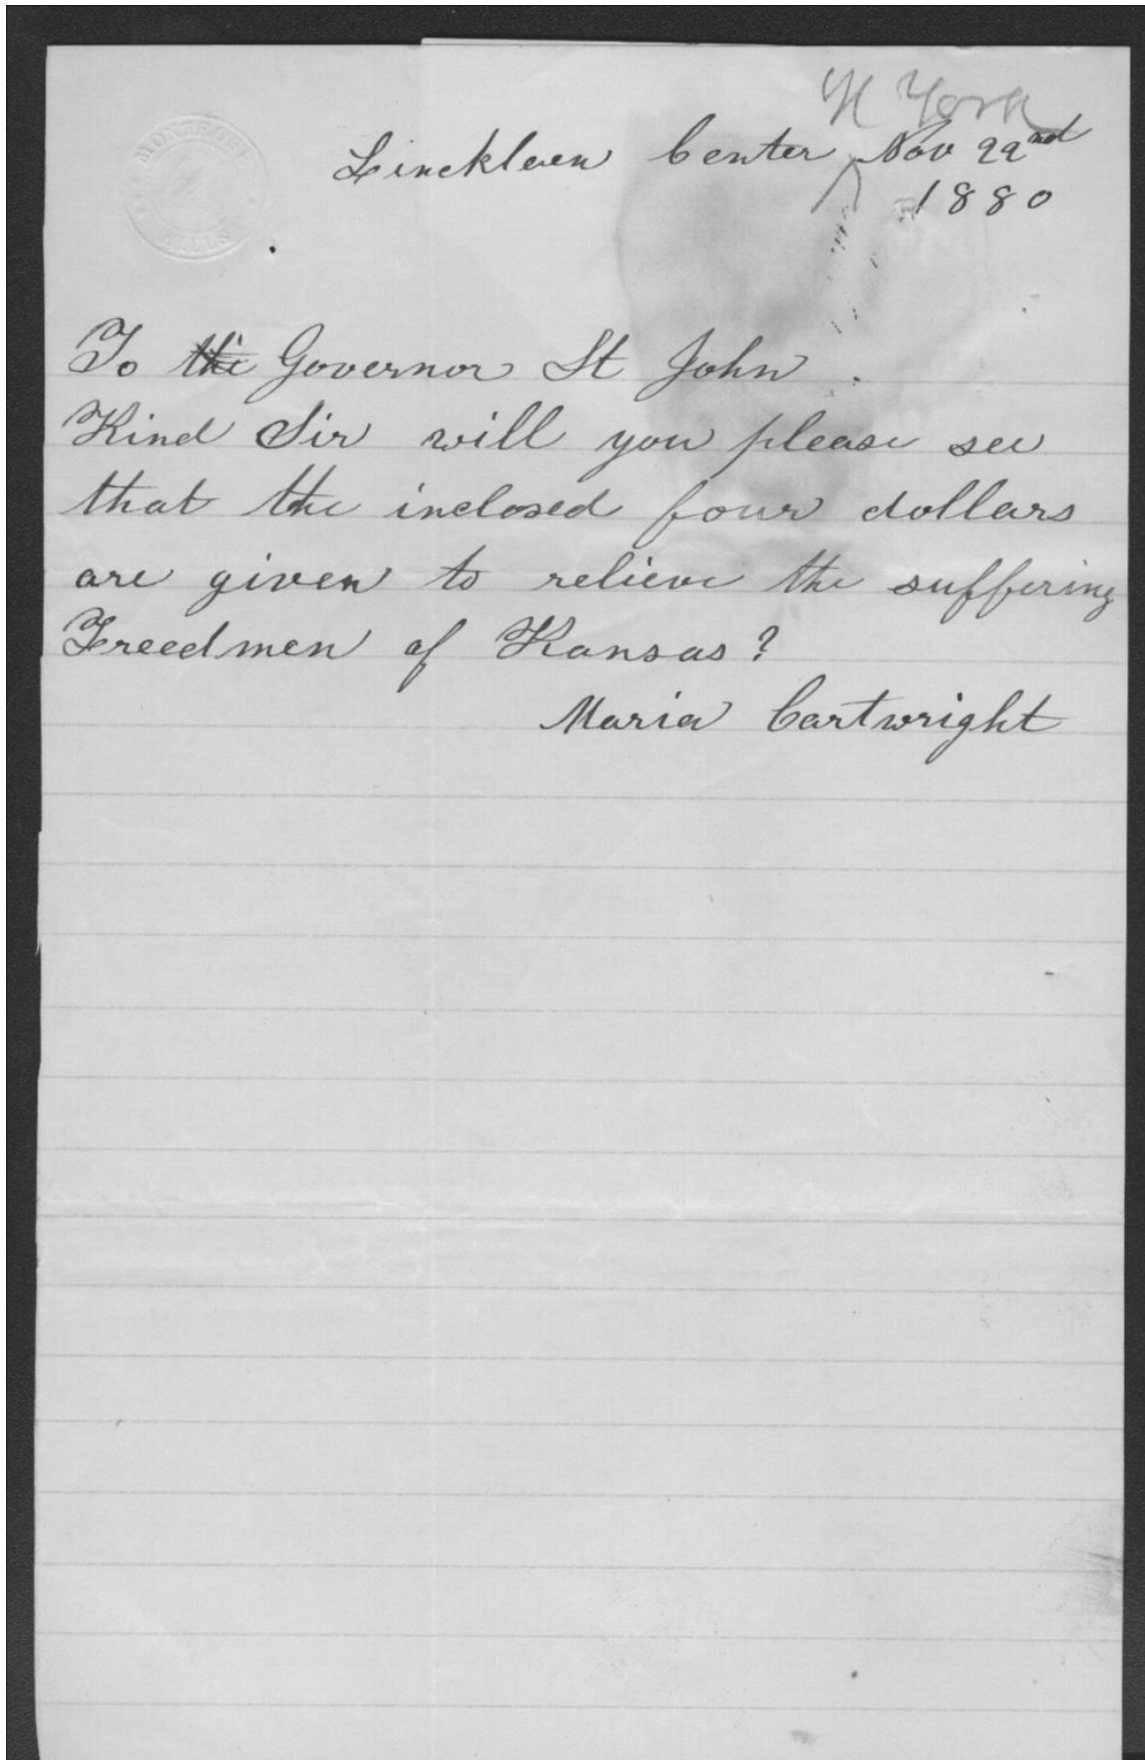 N York
Lincklaen Center Nov 22nd
1880
To the Governor St John.
Kind Sir will you please see
that the inclosed four dollars
are given to relieve the suffering
Freedmen of Kansas?
Maria Cartwright